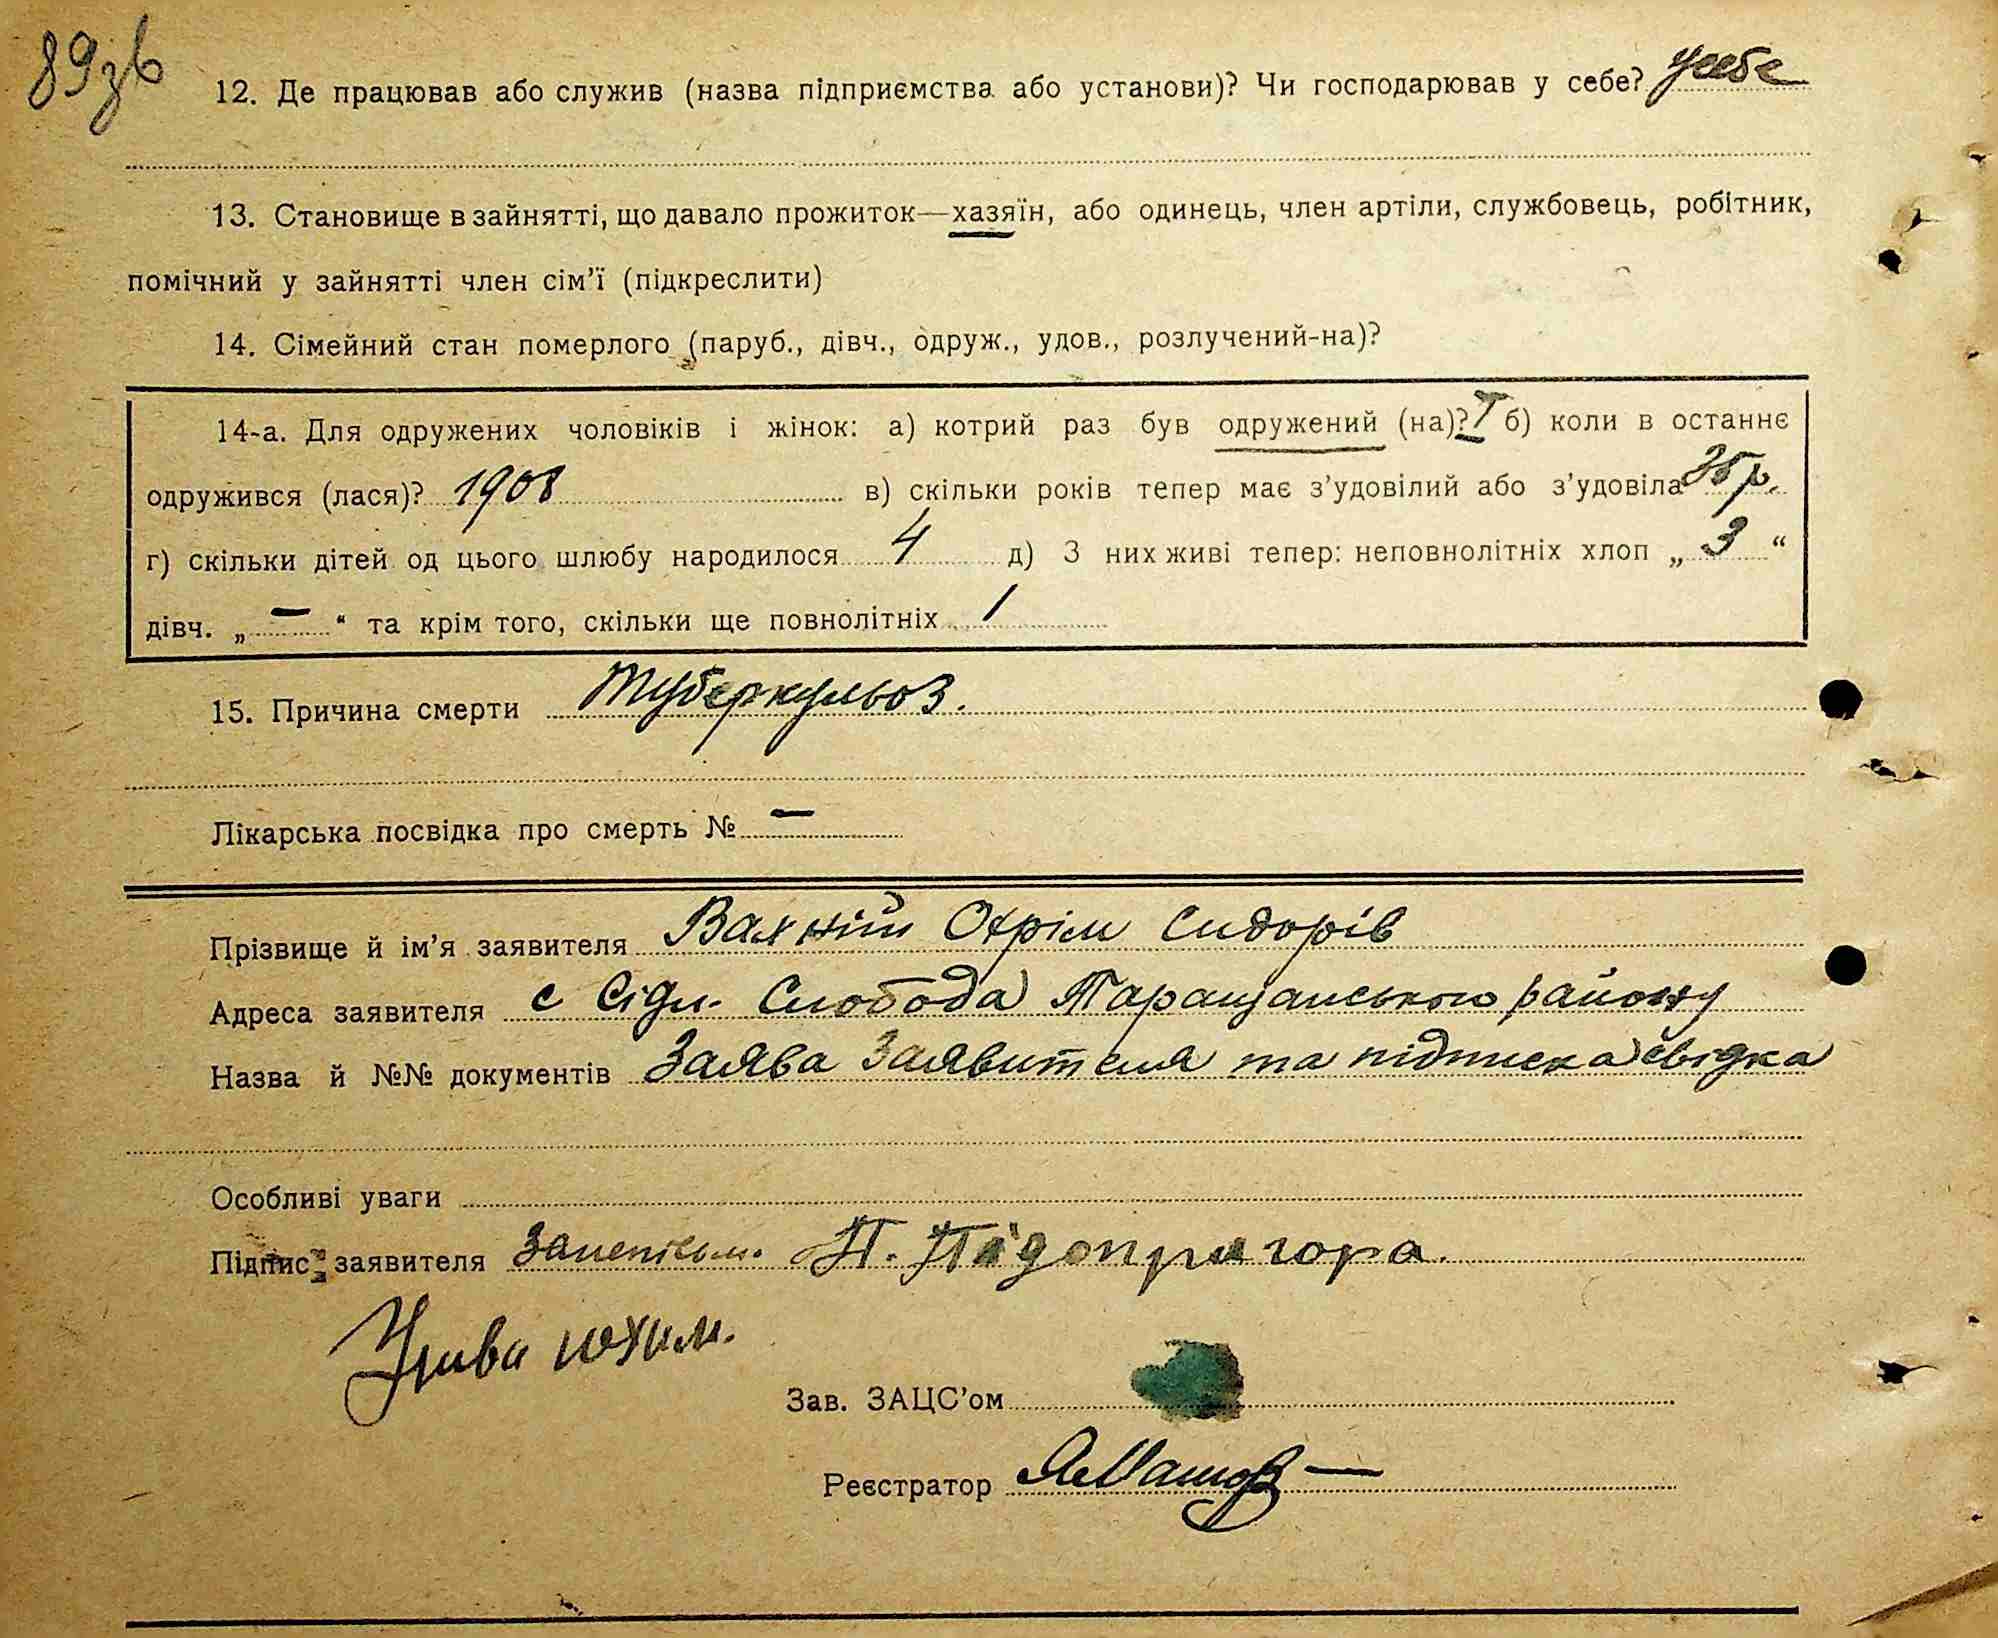 89 зв
12. Де працював або служив (назва підприємства або установи)? Чи господарював у себе? у себе
13. Становище в зайнятті, що давало прожиток—хазяїн, або одинець, член артіли, службовець, робітник,
помічний у зайнятті член сім'ї (підкреслити)
14. Сімейний стан померлого (паруб., дівч., одруж., удов., розлучений-на)?
14-а. Для одружених чоловіків і жінок: а) котрий раз був одружений (на)? I б) коли в останнє
одружився (лася)? 1908 в) скільки років тепер має з'удовілий або з'удовіла 35 р.
г) скільки дітей од цього шлюбу народилося 4 д) З них живі тепер: неповнолітніх хлоп „ 3 “
дівч. „ — “ та крім того, скільки ще повнолітніх 1
15. Причина смерти Туберкульоз.
Лікарська посвідка про смерть № —
Прізвище й ім'я заявителя Вахній Охрім Сидорів
Адреса заявителя с Сідл. Слобода Таращанського району
Назва й №№ документів Заява Заявителя та підписка свідка
Особливі уваги
Підпис заявителя П. Підопригора
Юхим.
Зав. ЗАЦС'ом
Реєстратор